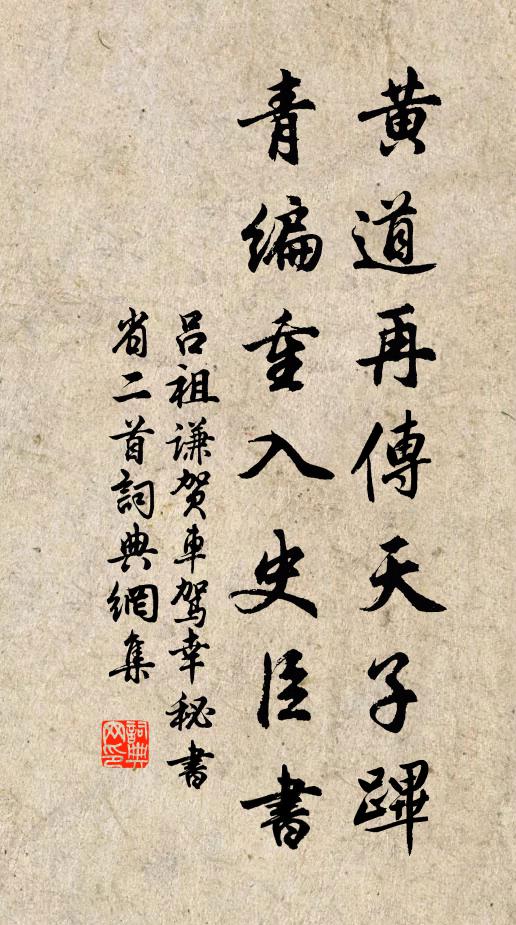 黃道再傳天子蹕
青編重入史臣書
呂祖謙賀車駕幸秘書
省二首詞典網集